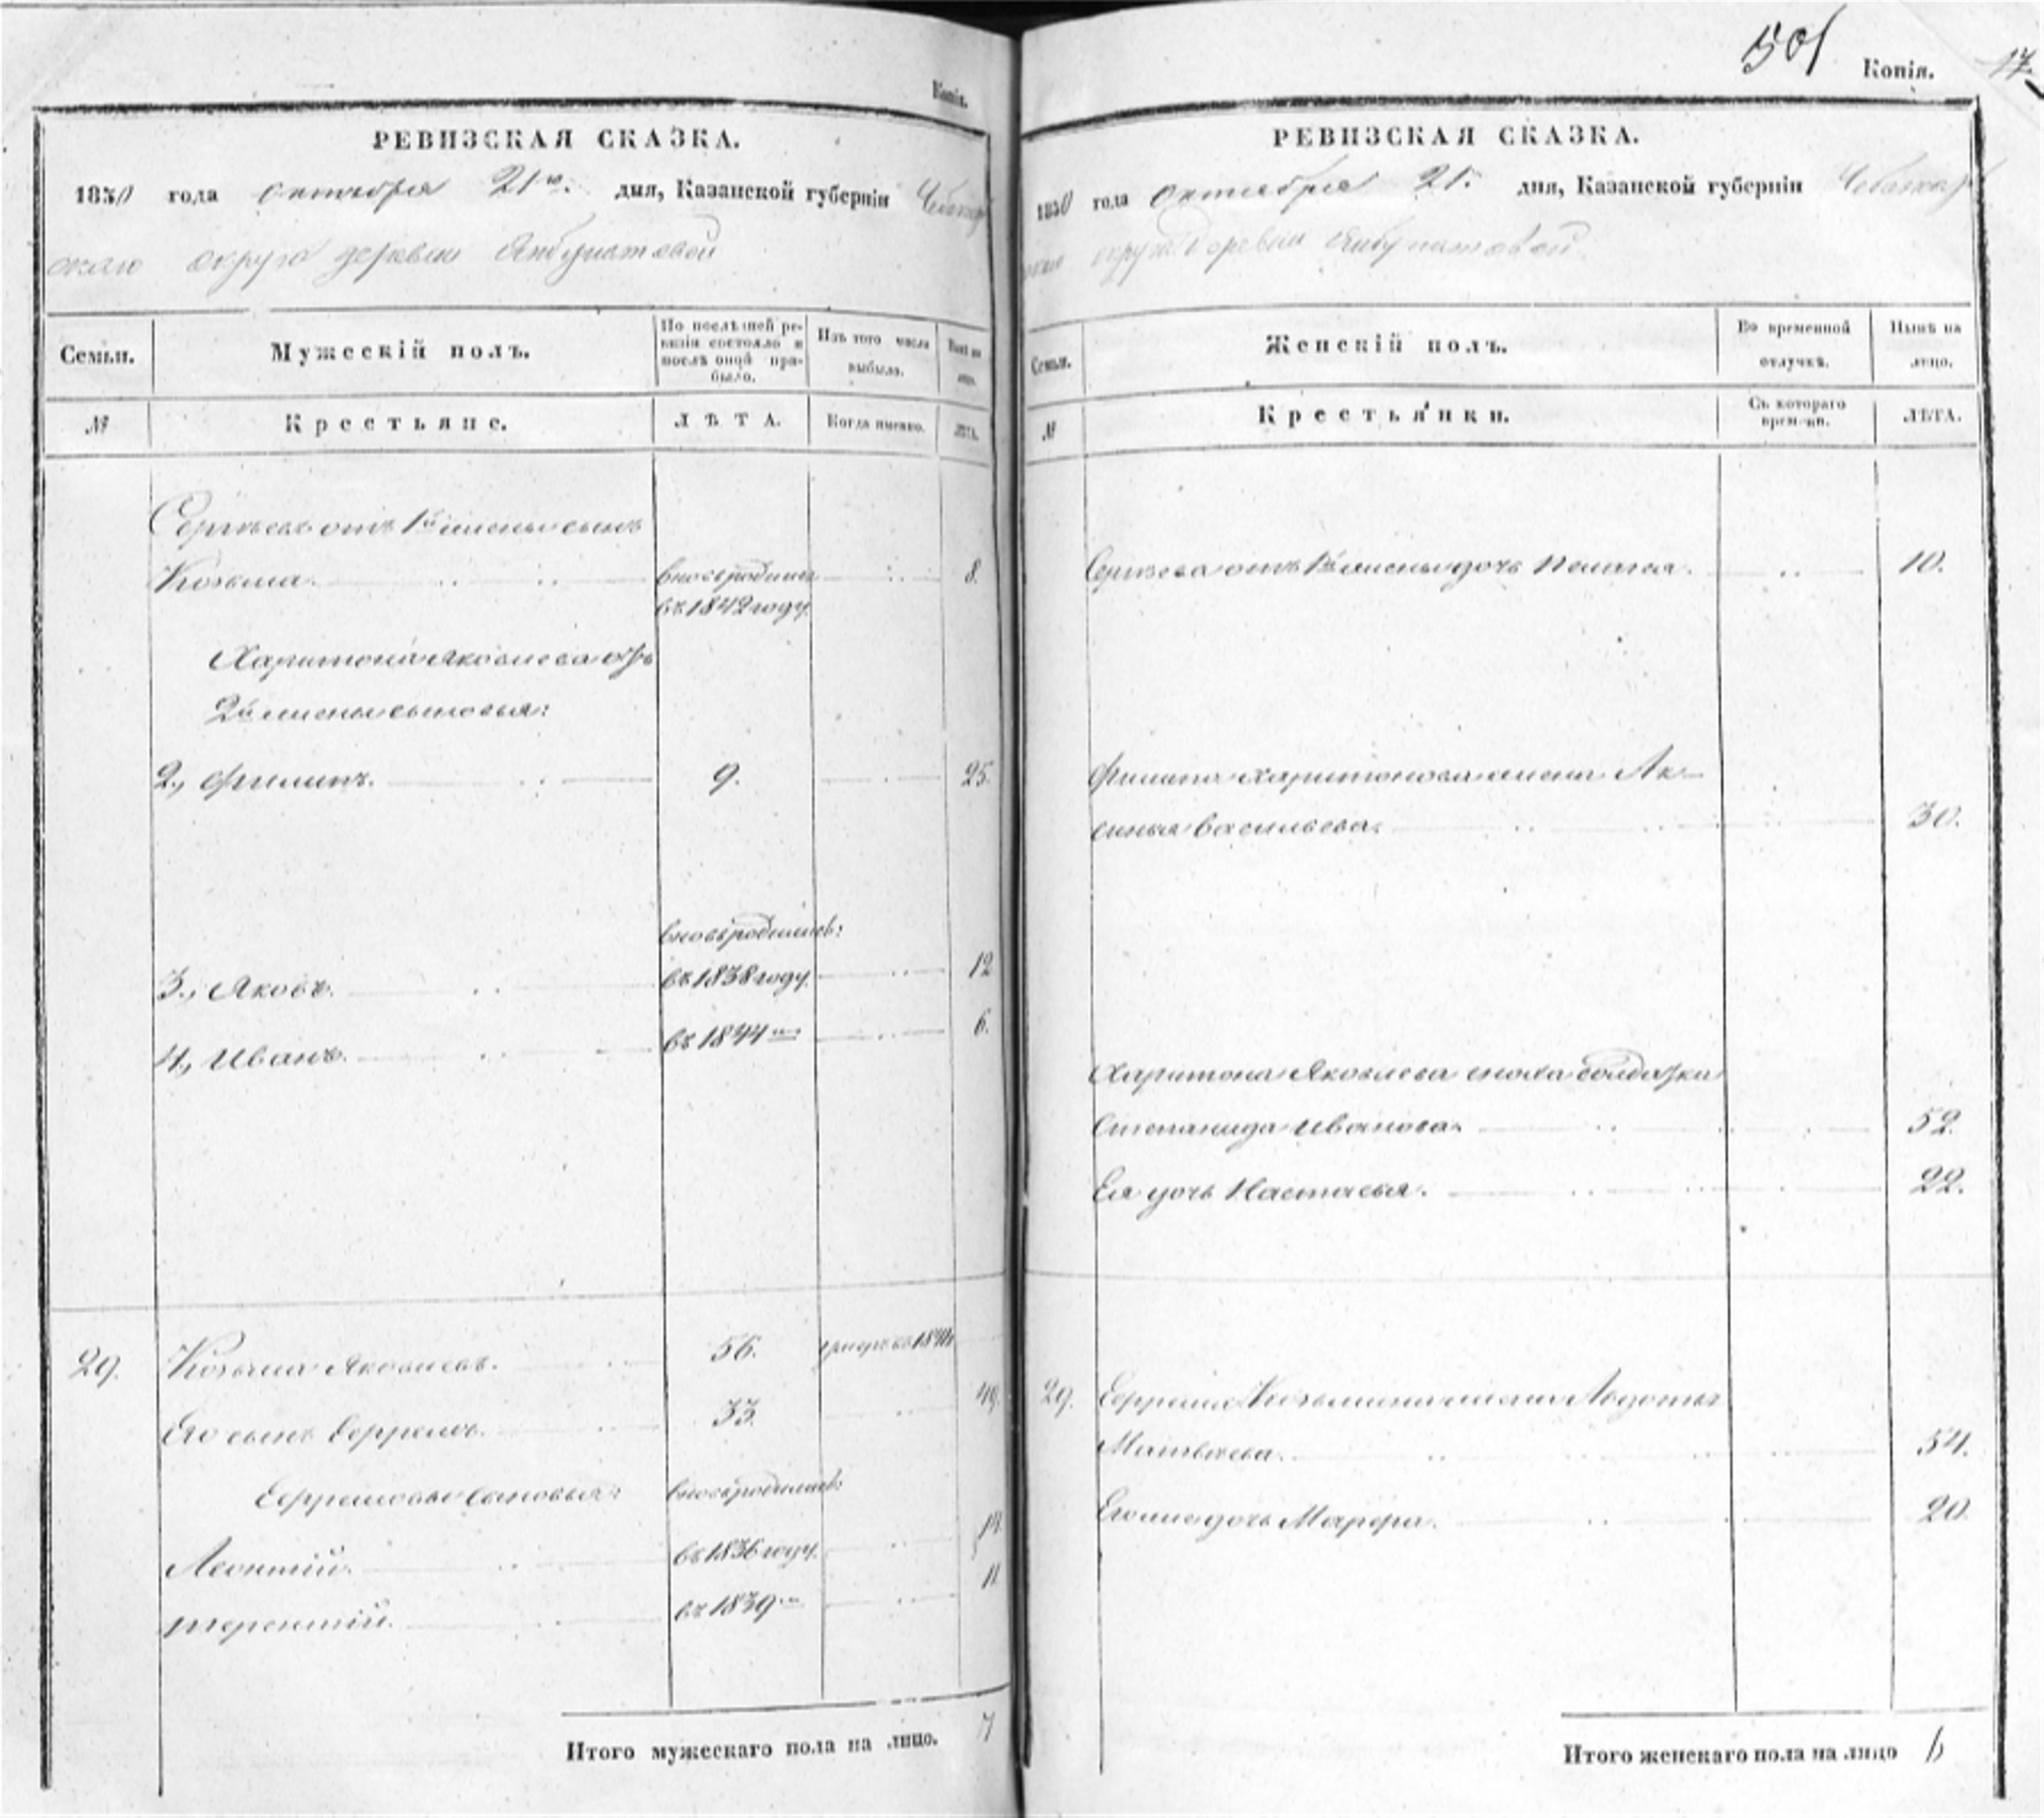 Копія.
РЕВИЗСКАЯ СКАЗКА.
1850 года октября 21го. дня, Казанской губерніи Чебоксар
скаго округа деревни Янбулатовой
Семьи.
Мужескій полъ.
По послѣдней ре-
визіи состояло и
послѣ оной при-
было.
Изъ того числа
выбыло.
Нынѣ на
лицо.
№
Крестьяне.
ЛѢТА.
Когда именно.
ЛѢТА.
Сергѣевъ отъ 1й жены сынъ
Козьма. вновь родился 8.
въ 1842 году
Харитона Яковлева отъ
2й жены сыновья:
2, Филипъ. 9. 25.
вновь родились:
3, Яковъ. въ 1838 году 12
4, Иванъ. въ 1844 6.
29. Козьма Яковлевъ. 56.
Его сынъ Ефремъ. 33. 49.
Ефремовы сыновья: вновь родились:
Леонтій. въ 1836 году 14
Терентій. въ 1839 11
Итого мужескаго пола на лицо. 7
501
Копія.
17.
РЕВИЗСКАЯ СКАЗКА.
1850 года октября 21. дня, Казанской губерніи Чебоксар
скаго округа деревни Янбулатовой
Семьи.
Женскій полъ.
Во временной
отлучкѣ.
Нынѣ на
лицо.
№
Крестьянки.
Съ котораго
времени.
ЛѢТА.
Сергѣева отъ 1й жены дочь Пелагея. 10.
Филипа Харитонова жена Ак-
синья Васильева. 30.
Харитона Яковлева сноха солдатка
Степанида Иванова. 52.
Ея дочь Настасья. 22.
29. Ефрема Козьмина жена Авдотья
Матвѣева. 54.
Его же дочь Марфа. 20.
Итого женскаго пола на лицо 6